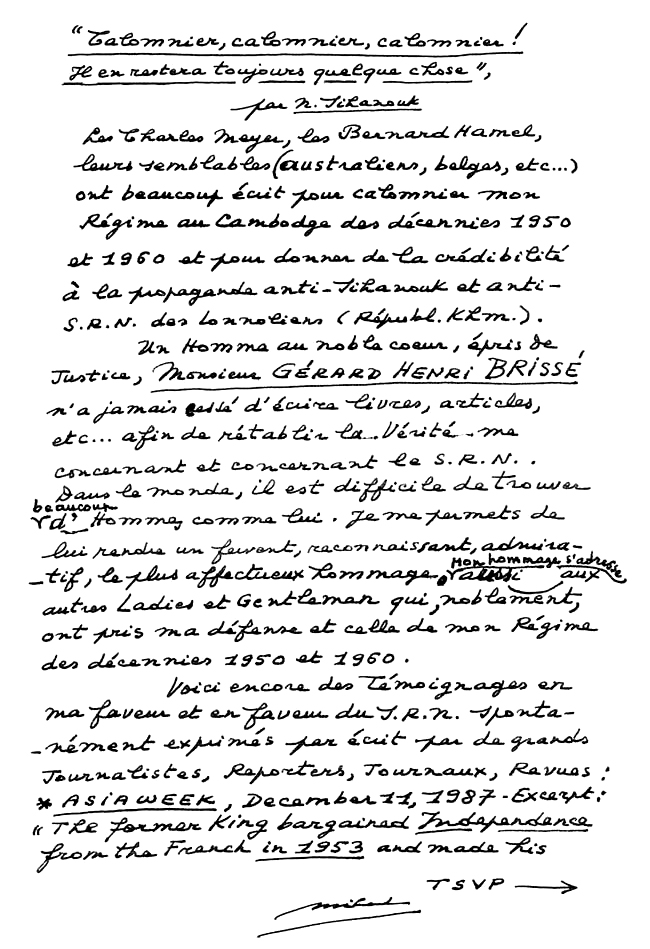 "Calomnier, calomnier, calomnier !
Il en restera toujours quelque chose",
par N. Sihanouk
Les Charles Meyer, les Bernard Hamel,
leurs semblables (australiens, belges, etc...)
ont beaucoup écrit pour calomnier mon
Régime au Cambodge des décennies 1950
et 1960 et pour donner de la crédibilité
à la propagande anti-Sihanouk et anti-
S.R.N. des lonnoliens (Républ. Khm.).
Un Homme au noble coeur, épris de
Justice, Monsieur GÉRARD HENRI BRISSÉ
n'a jamais cessé d'écrire livres, articles,
etc... afin de rétablir la Vérité me
concernant et concernant le S.R.N..
Dans le monde, il est difficile de trouver
beaucoup
d' Hommes comme lui. Je me permets de
lui rendre un fervent, reconnaissant, admira-
-tif, le plus affectueux hommage. Mon hommage s'adresse
aussi aux
autres Ladies et Gentleman qui, noblement,
ont pris ma défense et celle de mon Régime
des décennies 1950 et 1960.
Voici encore des Témoignages en
ma faveur et en faveur du S.R.N. sponta-
-nément exprimés par écrit par de grands
Journalistes, Reporters, Journaux, Revues :
* ASIAWEEK, December 11, 1987 - Excerpt :
"The former King bargained Independence
from the French in 1953 and made his
TSVP →